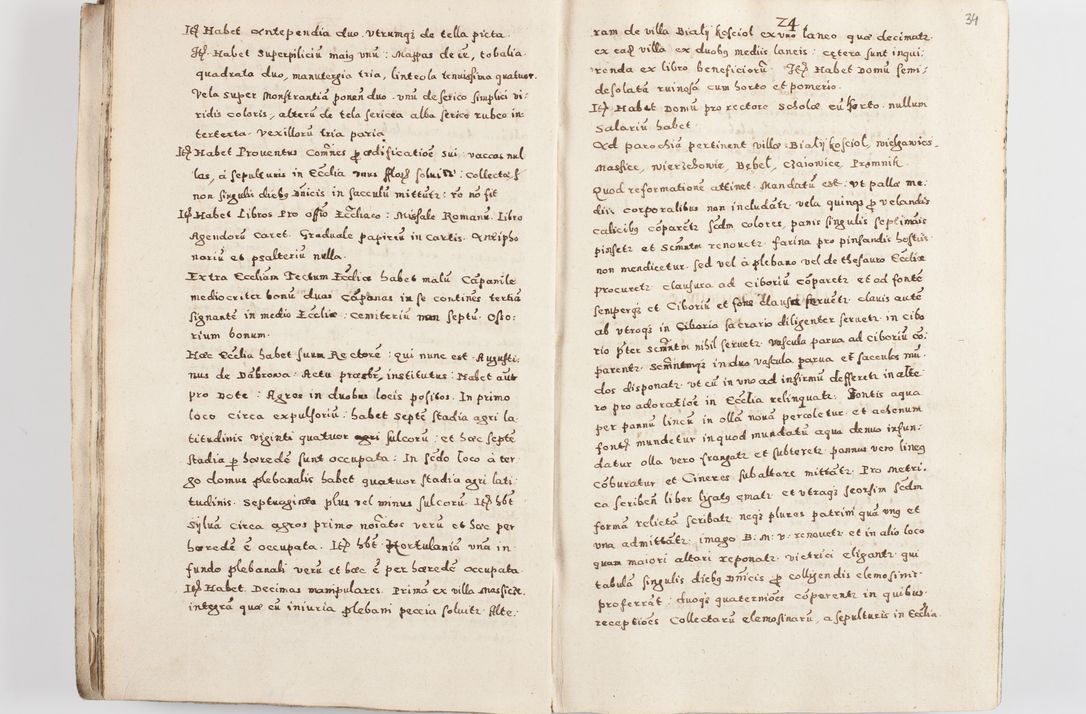 Itē Habet Antependia duo utrumqʒ de tella picta.
Itē Habet Superpiliciū maiʒ vnū: Mappas de    , tobalia
quadrata duo, manutergia tria, linteola tenuissima quatuor.
Vela super Monstrantiā ponen duo. vnū de serico simplici vi:
ridis coloris, alterū de tela sericea alba serico rubeo in:
tertexta. vexillorū tria paria
Itē Habet Proventus Com̄nes p ædificatioē sui: vaccas nul
las, à sepulturis in Ecclia vnus flor solvit: Collecta
non singulis diebʒ Dnicis in sacculū mittutr: ro no fit
Itē Habet Libros Pro offo Ecctiaco: Missale Romanū. Libro
Agendorū Caret. Graduale papireū in Cartis. Antipho
nariū et psalteriū nulla.
Extra Eccliam Tectum Ecctiæ habet malū Cāpanile
mediocriter bonū duas Cāpanas in se continēs tertiā
signantē in medio Eccliæ: Cemiteriū non septū. Osso:
rium bonum.
Hæc Ecclia habet suum Rectorē: qui nunc est Augusti
nus de Dābrowa: Actu præsbr, institutus: Habet autē
pro Dote: Agros in duobus locis positos. In primo
loco circa expulsoriū: habet septē stadia agri la
titudinis viginti quatuor agri sulcorū: et hæc septē
stadia p hæredē sunt occupata: In secdo loco à ter
go domus plebanalis habet quatuor stadia agri lati
tudinis. septuaginta plus vel minus sulcorū. Itē hbt
sylvā circa agros primo noiatos verū et hæc per
hæredē ē occupata. Itē hbt Hortulaniā vnā in
fundo plebanali verū et hæc ē per hæredē occupata
Itē Habet Decimas manipulares. Primā ex villa Massicze
integrā quæ cū iniuria plebani pecīa solvitr. Alte:
24
34
ram de villa Bialij kosciol ex vno laneo quæ decimatr
ex eap villa ex duobʒ mediis laneis: cętera sunt inqui:
renda ex libro beneficiorū. Itē Habet Domū semi:
desolatā ruinosā cum horto et pomerio.
Itē Habet Domū pro rectore Scholæ cū horto. nullum
Salariū habet
Ad parochiā pertinent villæ: Bialij kosciol, wielgawies.
Massice, wierzchowie, Bębel, Czaiowice Promnik.
Quod reformationē attinet. Mandatū est. vt pallæ me:
diis corporalibus non includātr vela quinqʒ p velandis
calicibʒ cōparētr scdm colores, panis singulis septimānis
pinsetr et Scmntm renovetr. farina pro pinsandis hostiis
non mendicetur. sed vel à plebano vel de thesauro Eccliæ
procuretr clausura ad Ciboriū cōparetr et ad fontē
semperqʒ et Ciboriū et fons clausa servetr. clavis autē
ab utroqʒ in Ciborio sacrario diligenter servetr. in cibo
rio pter Scmntm nihil servetr. vascula parva ad ciboriū cō:
parentr. Scmntmqʒ in duo vascula parva et sacculos mū:
dos disponatr. vt cū in vno ad infirmū defferetr in alte
ro pro adoratioē in Ecclia relinquatr. Fontis aqua
per pannū lineū in ollā novā percoletur. et aehenum
fontē mundetur in quod mundatū aqua denuo infun:
datur olla vero frangatr et subteretr pannus vero lineʒ
cōburatur et Cineres sub altare mittatr. Pro Metri:
ca scribēn liber lgaty ematr et vtraqʒ seorsim scdm
formā relictā scribatr neqʒ plures patrini quā vnʒ et
vna admittātr. imago B: M: v: renovetr et in alio loco
quam maiori altari reponatr. vietrici eligantr qui
tabulā singulis diebʒ Dnicis p colligendis elemosinis
proferrāt: duoqʒ quaternioēs cōparentr in quibus
receptioēs Collectarū elemosinarū, a sepulturis in Ecclia.